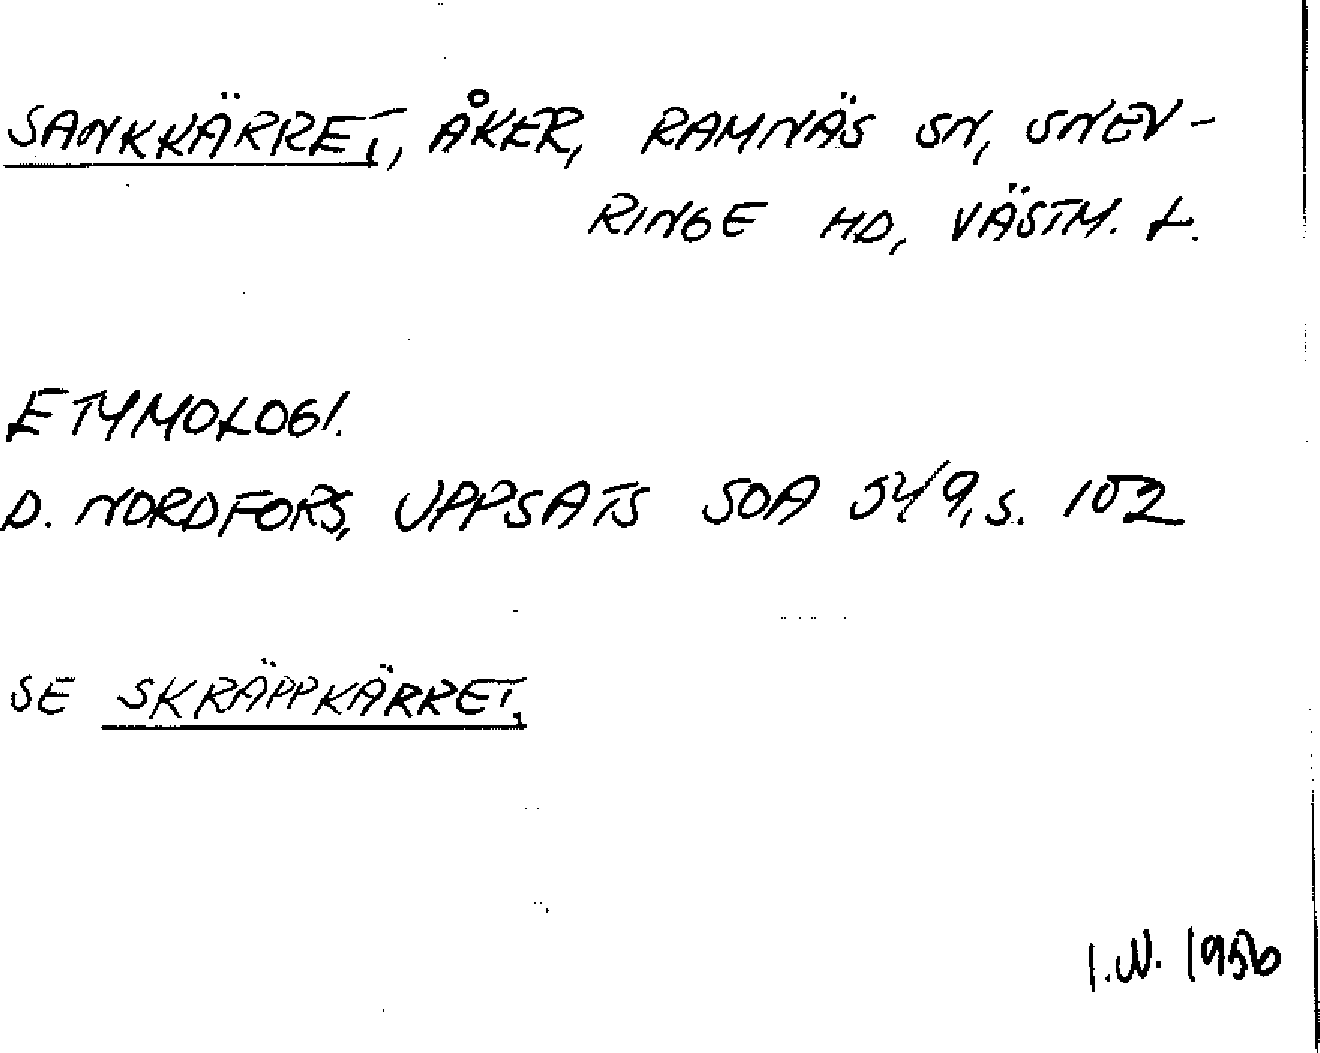 SANKKÄRRET, ÅKER, RAMNÄS SN, SNEV-
RINGE HD, VÄSTM. L.
ETYMOLOGI.
D. NORDFORS, UPPSATS SOA 54/9, S. 102
SE SKRÄPPKÄRRET.
I.W. 1956